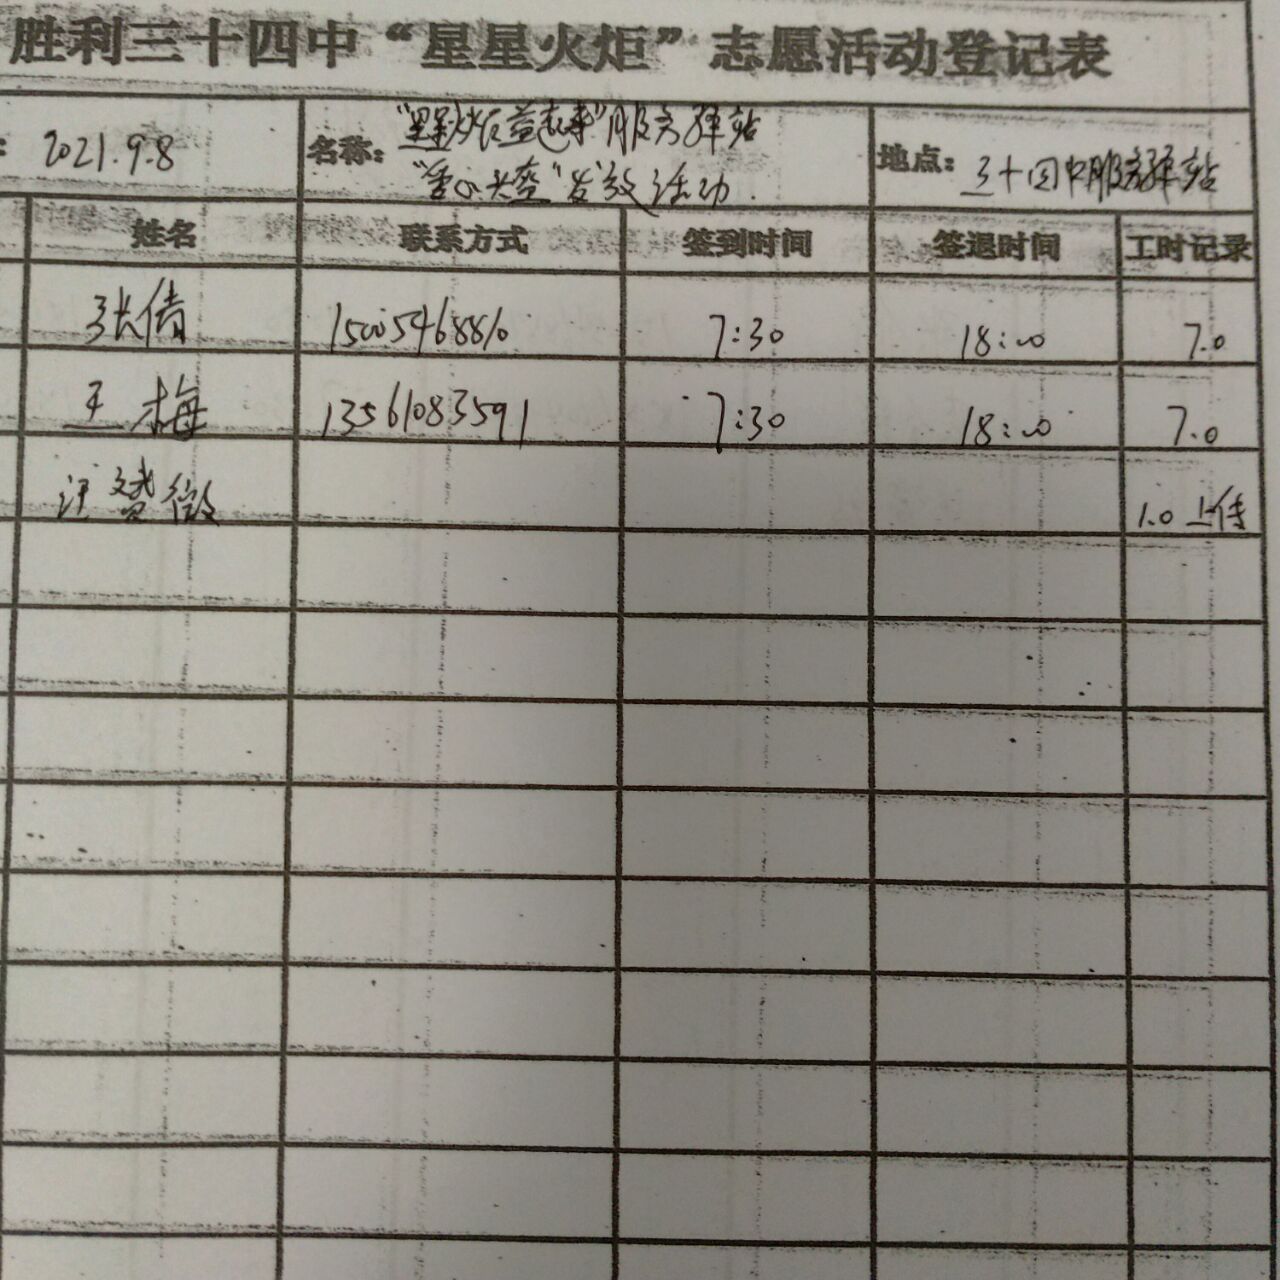 胜利三十四中“星星火炬”志愿活动登记表
: 2021.9.8 名称: “星星火炬益起来”服务驿站 地点: 三十四中服务驿站
“爱心 ”发放活动.
姓名 联系方式 签到时间 签退时间 工时记录
张倩 15005468810 7:30 18:00 7.0
王梅 13561083591 7:30 18:00 7.0
汪赟薇 1.0 上传